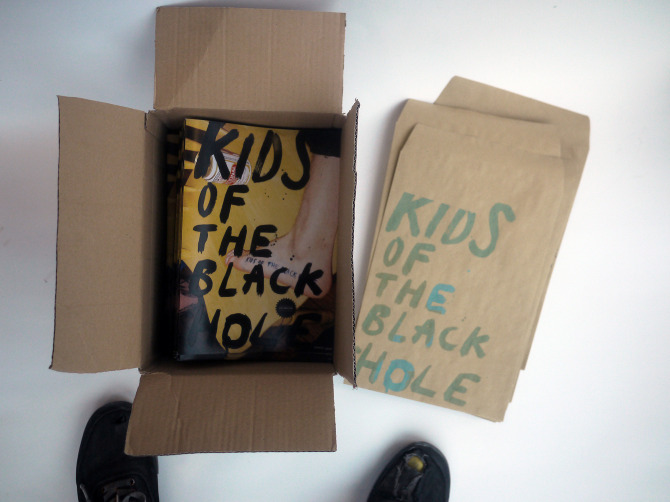 KIDS
OF
THE
BLACK
HOLE
KIDS
OF
THE
BLACK
HOLE